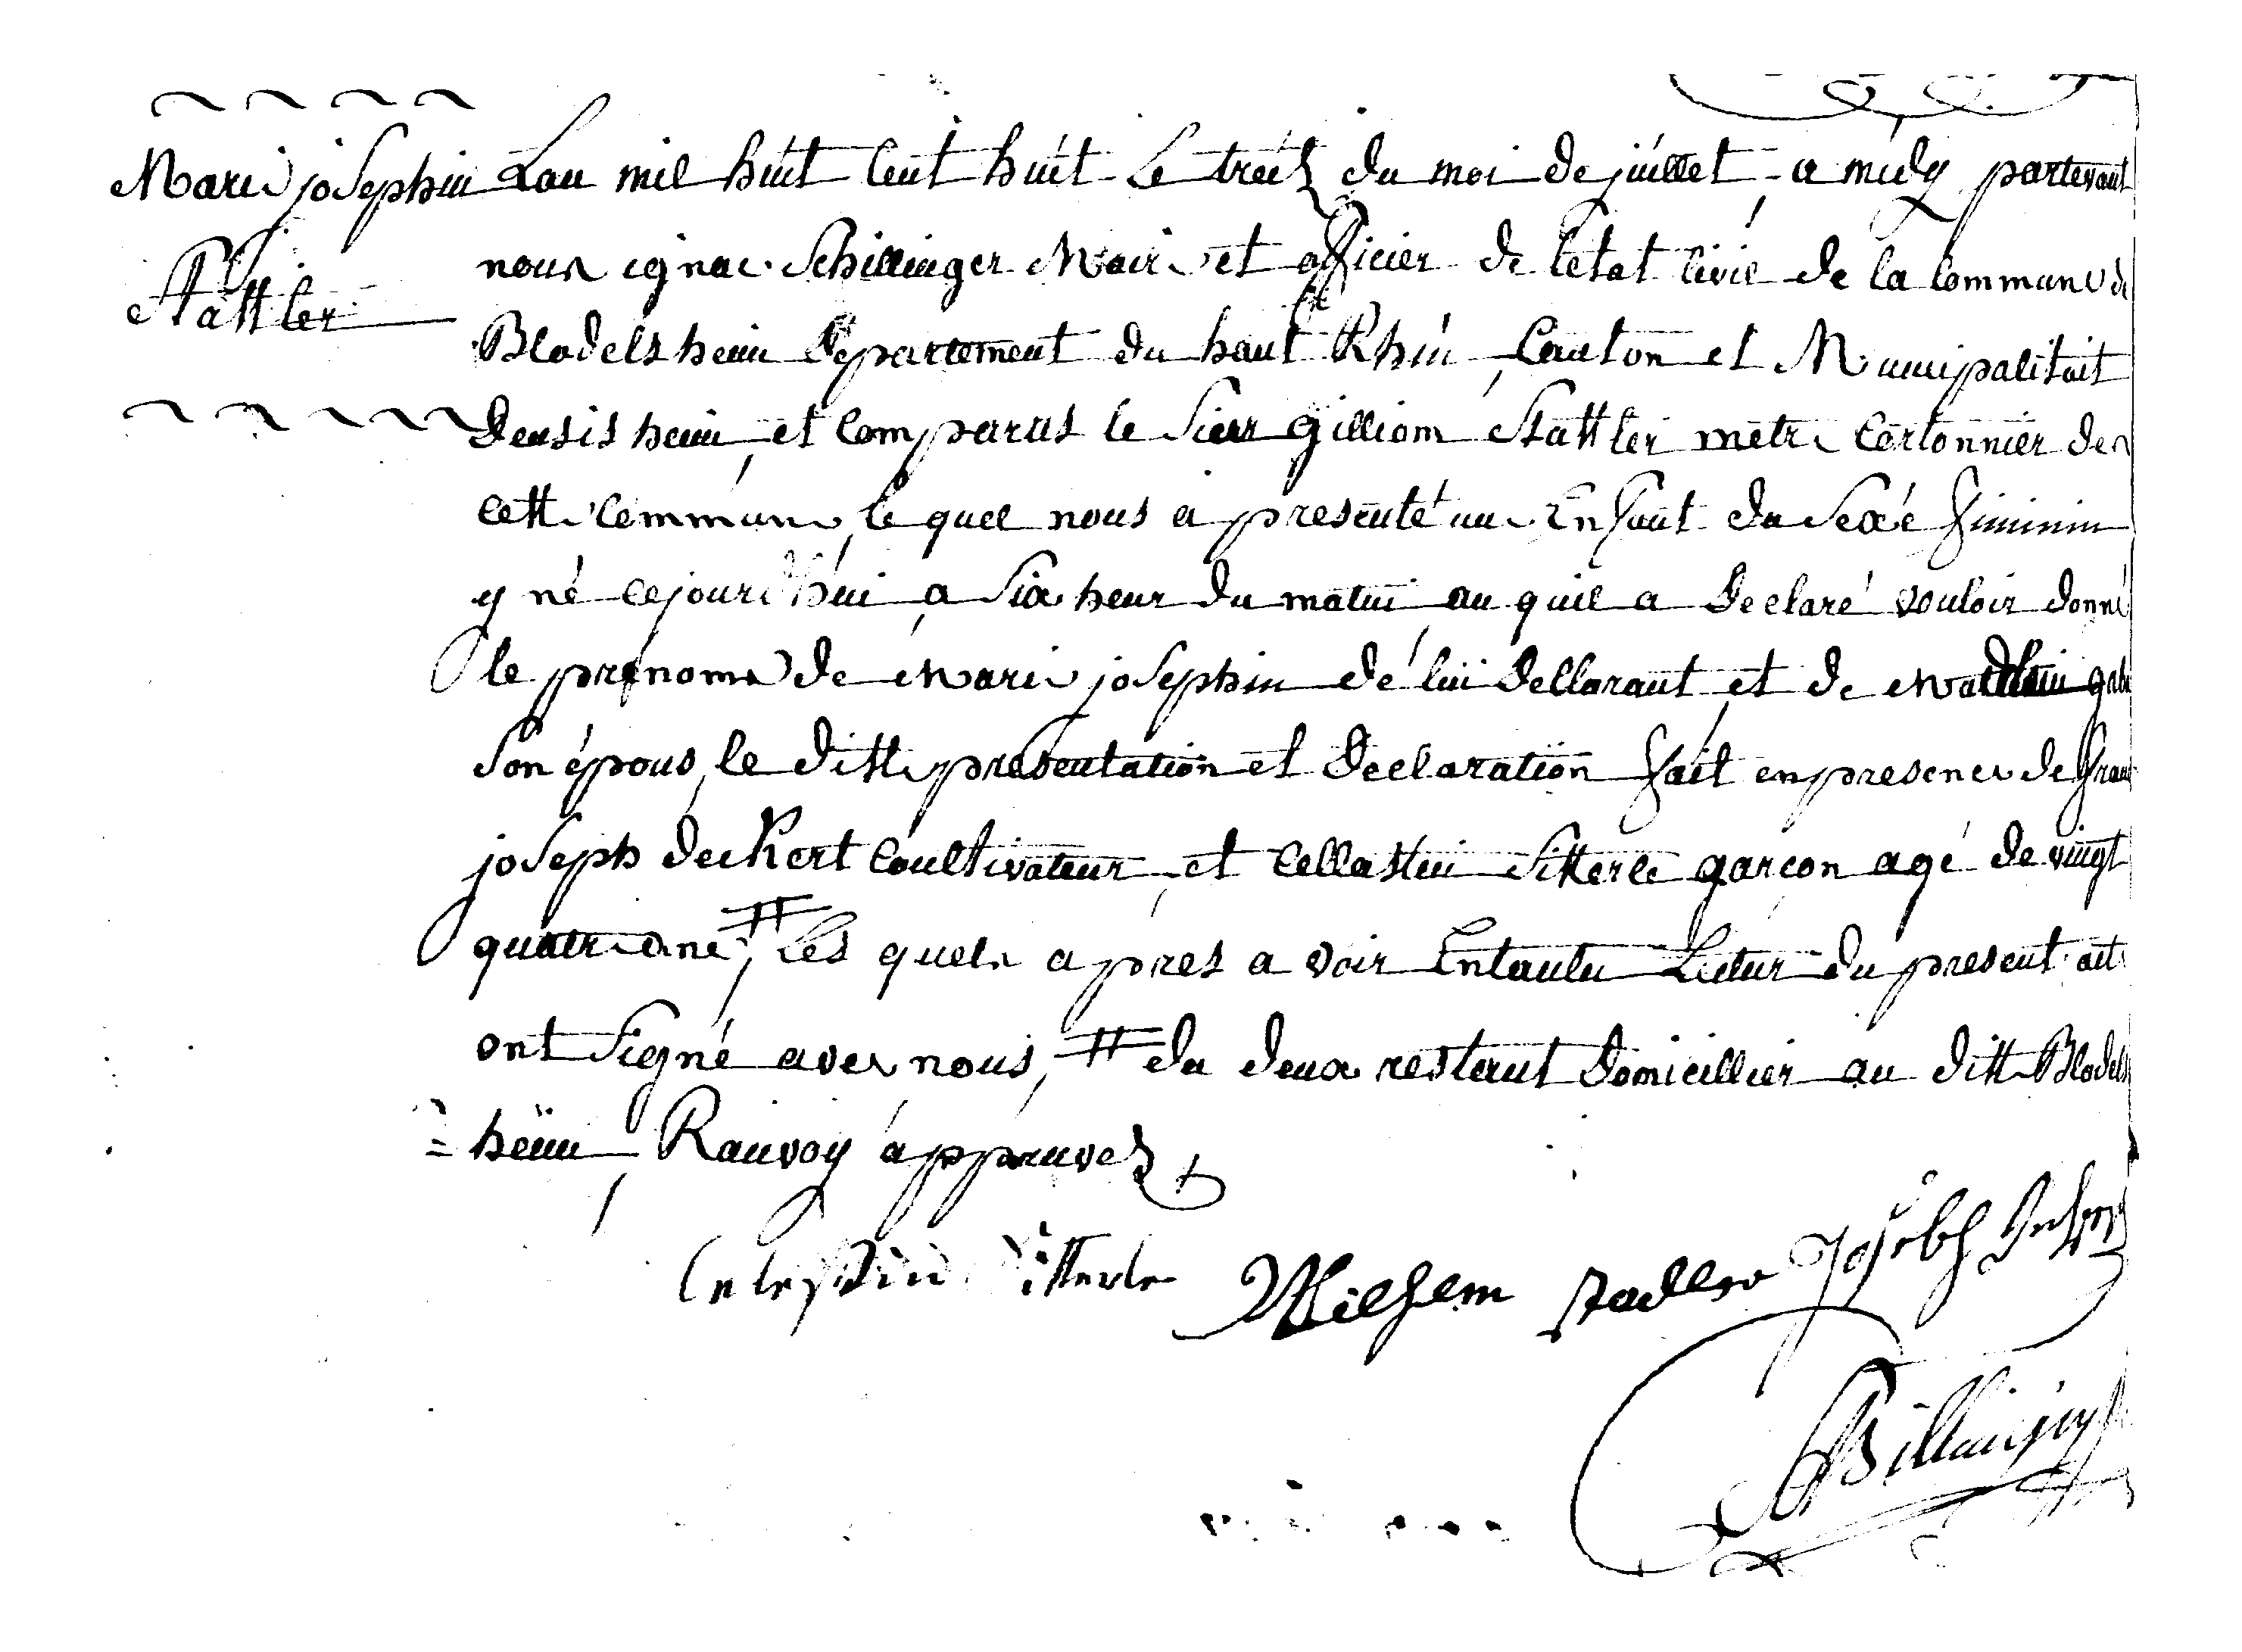 Marie josephin
Stattler
Lan mil huit Cent huit Le treiz du moi de juillet a midy partevant
nous ignac Schillinger Maire et officier de létat Civil de la Commune de
Blodelsheim Departement du haut Rhin, Canton et Municipalitait
densisheim, et Comparus le Sieur gilliom Stattler metre Cortonnier de
cette Commune, le quel nous a presenté un Enfant du Sexé feminin
y né cejourdhui, a Six heur du matin au quil a Declaré vouloir donné
le prenome de Marie josephin dé lui Dellarant et de
Son épous, le ditte presentation et Declaration fait en presence de frans
joseph deckert Coultivateur, et Cellastin Sitterle garçon agé de vingt
quatre ane, # Les quels apres a voir Entantu Lectur du present act
ont Signé avec nous, # du deux restant Domicillier au ditt Blodels
= heim, Rauvoy appruvez
Celestin Sitterle Wilhelm Stadler Joseph
Schillinger